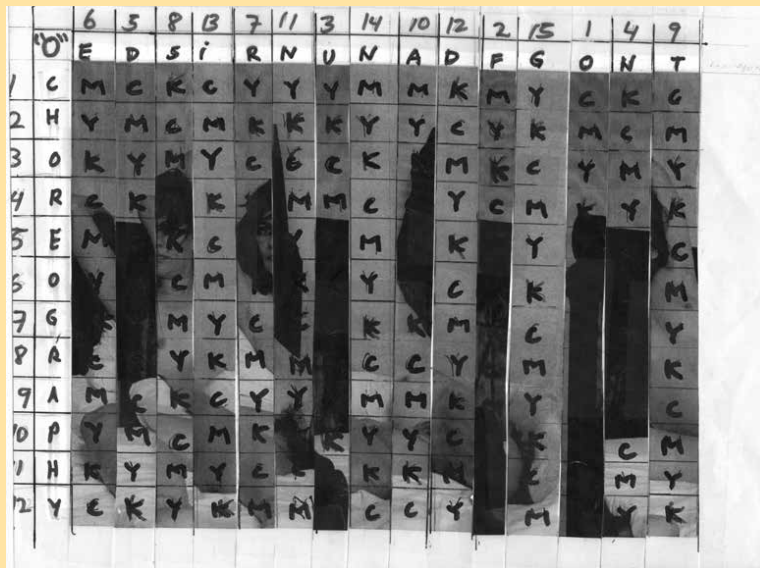 6 5 8 13 7 11 3 14 10 12 2 15 1 4 9
"O" E D S i R N U N A D F G O N T
1 C M C K C Y Y Y M M K M Y C K C
2 H Y M C M K K K Y Y C Y K M C M
3 O K Y M Y C C C K M K C Y M Y
4 R C K K M M C Y C M K Y K
5 E M K C Y M K Y C
6 O Y C M Y C K M
7 G M Y C K K M C Y
8 R C Y K M M C C Y M K
9 A M C K C Y Y M M K Y C
10 P Y M C M K K Y Y C K C M
11 H K Y M Y C C K K M C M Y
12 Y C K Y K M M C C Y M Y K